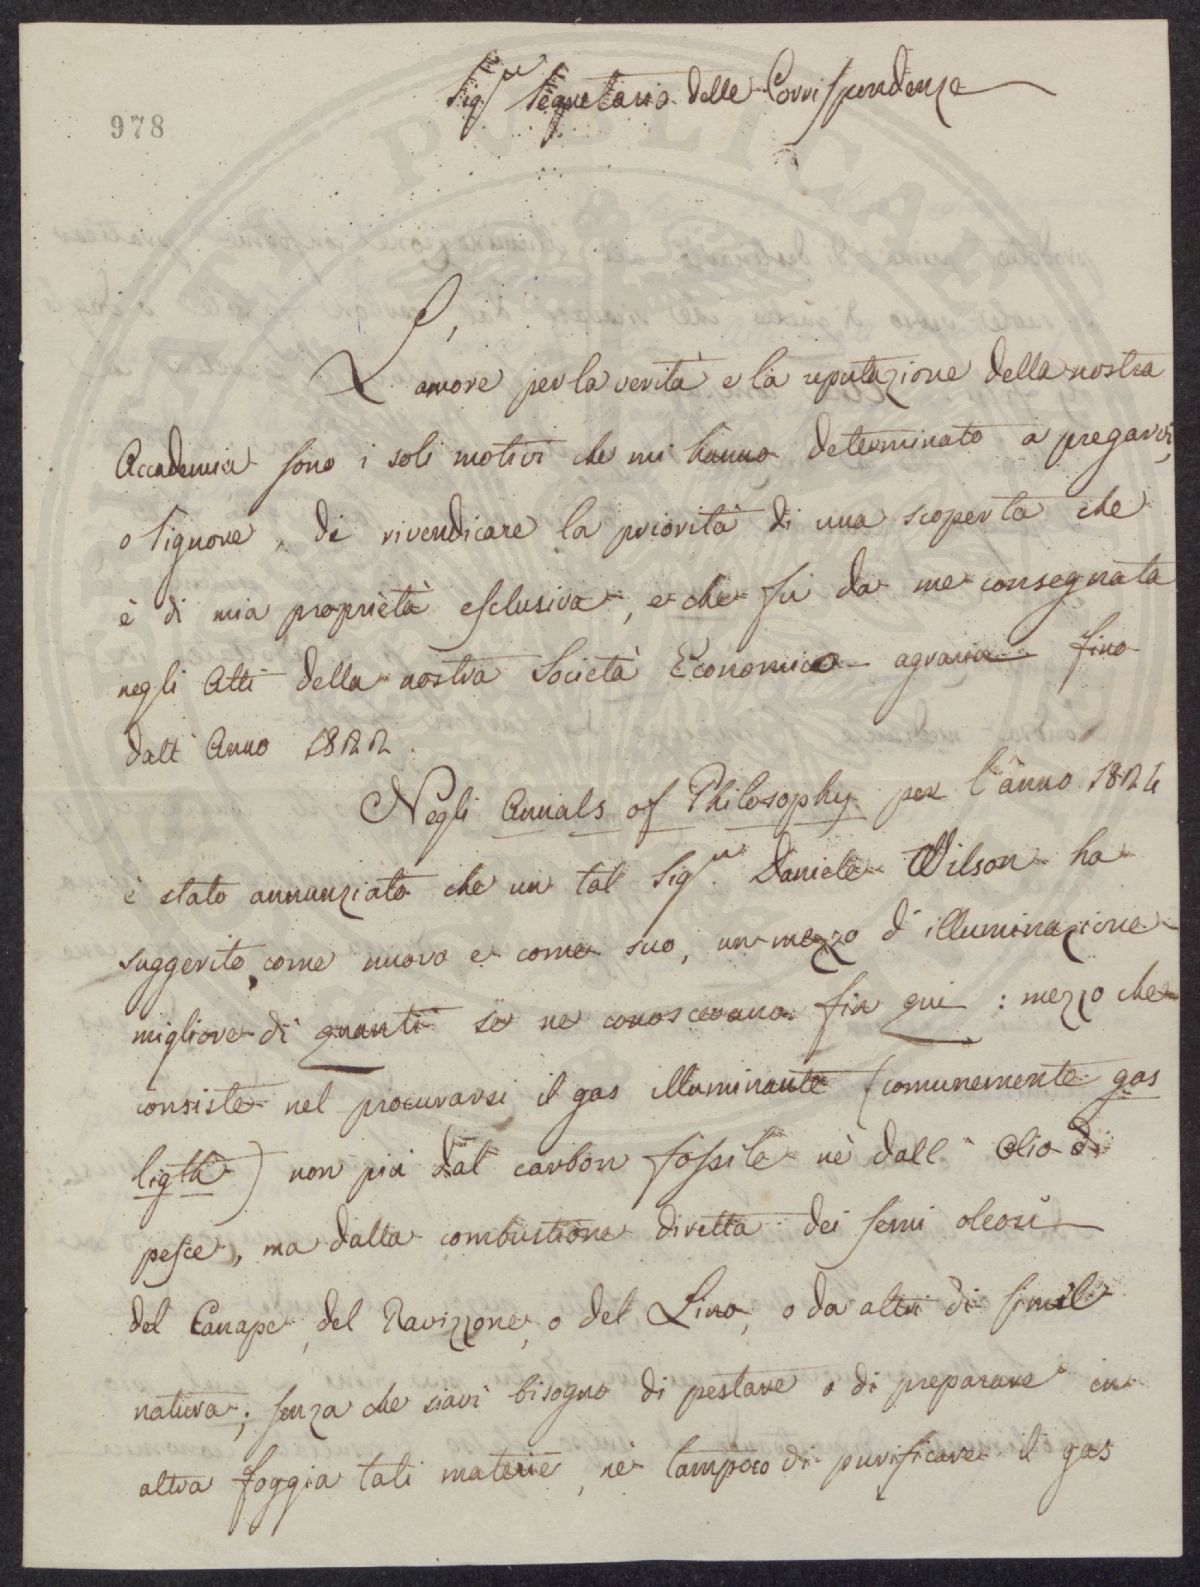 978
Sig.re Segretario delle Corrispondenze
L'amore per la verità e la reputazione della nostra
Accademia sono i soli motivi che mi hanno determinato a pregarvi,
o Signore, di rivendicare la priorità di una scoperta che
è di mia proprietà esclusiva, e che fu da me consegnata
negli Atti della nostra Società Economico agraria fino
dall'Anno 1822.
Negli Annals of Philosophy per l'anno 1824
è stato annunziato che un tal Sig.r Daniele Wilson ha
suggerito, come nuovo e come suo, un mezzo d'illuminazione
migliore di quanti se ne conoscevano fin qui : mezzo che
consiste nel procurarsi il gas illuminante (comunemente gas
ligth) non più dal carbon fossile nè dall'olio di
pesce, ma dalla combustione diretta dei semi oleosi
del Canape, del Ravizzone, o del Lino, o da altri di simil
natura; senza che siavi bisogno di pestare o di preparare in
altra foggia tali materie, nè tampoco di purificare il gas